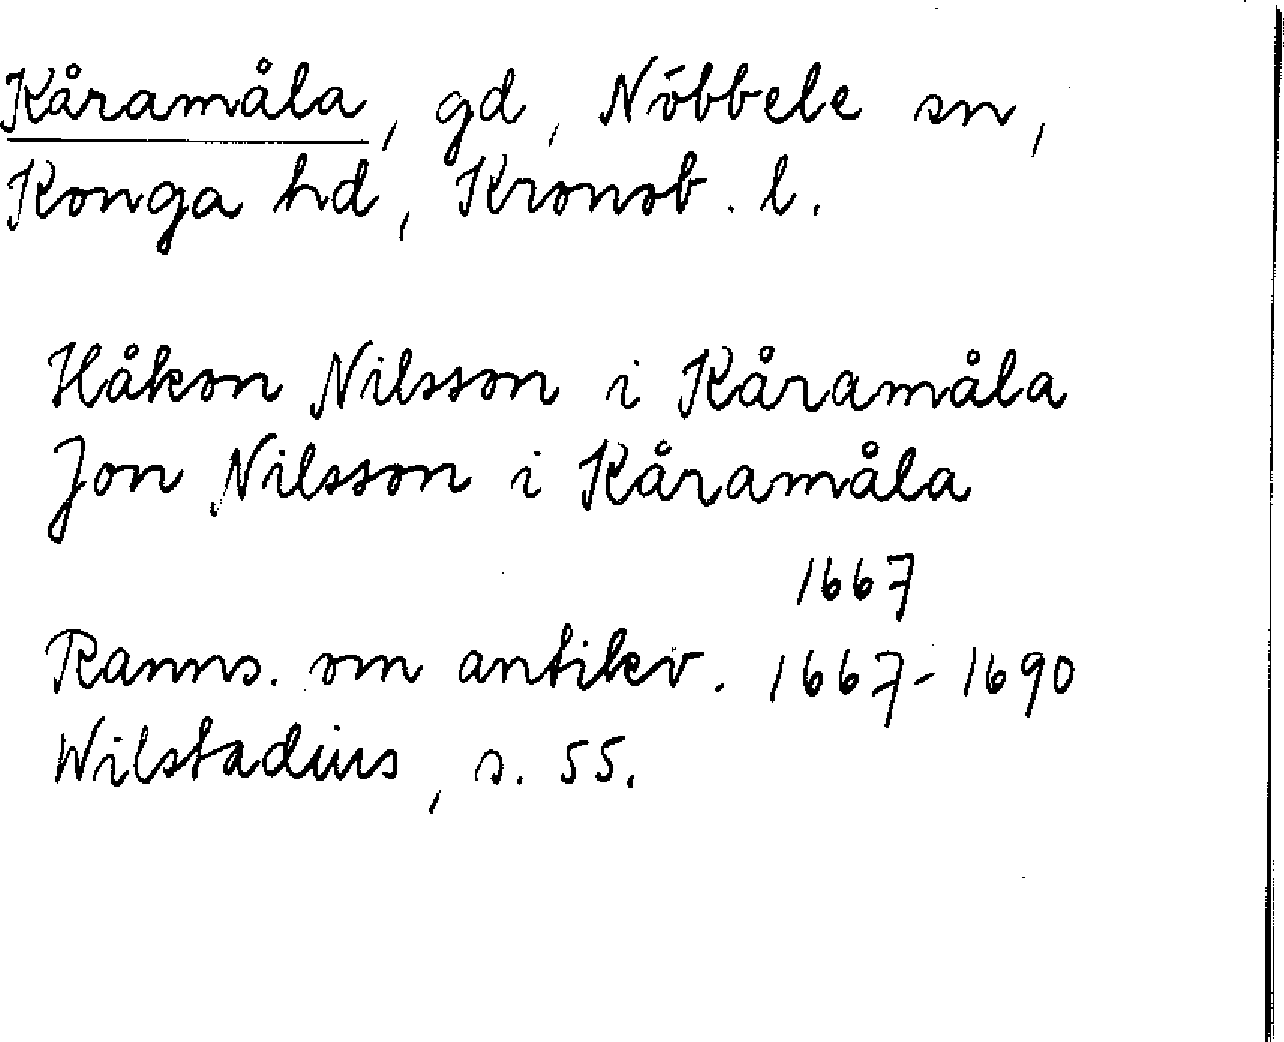 Kåramåla, gd, Nöbbele sn,
Konga hd, Kronob. l.
Håkon Nilsson i Kåramåla
Jon Nilsson i Kåramåla
1667
Ranns. om antikv. 1667-1690
Wilstadius, s. 55.